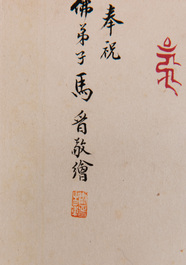 奉祝
佛弟子馬晉敬繪